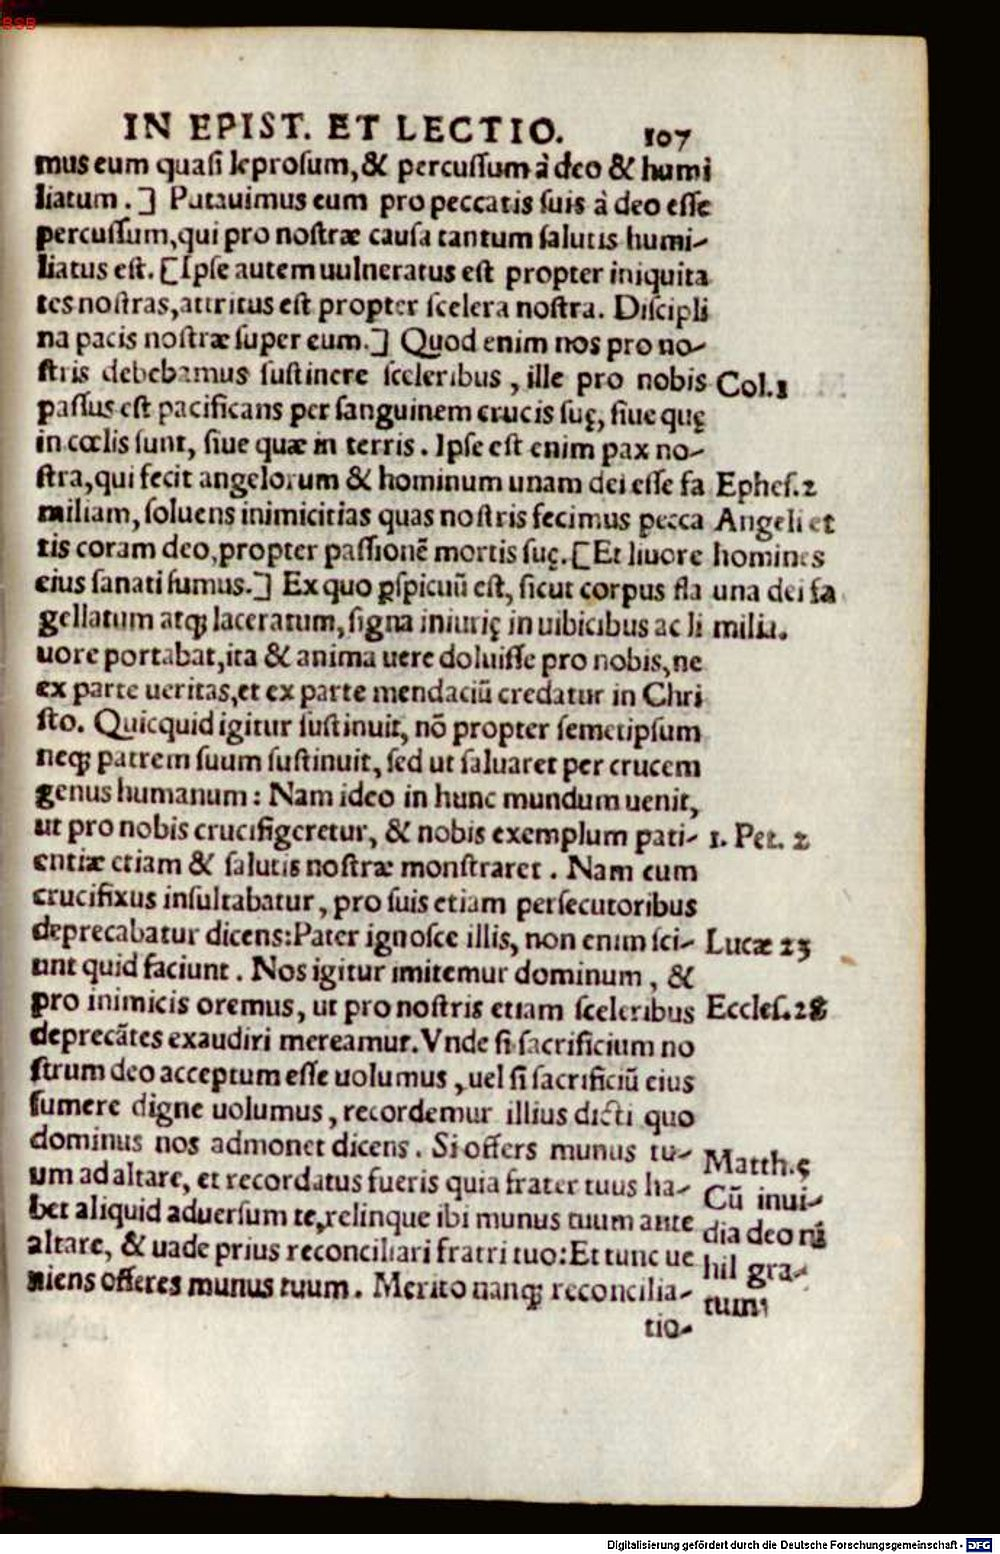 BSB
IN EPIST. ET LECTIO. 107
mus eum quasi leprosum, & percussum à deo & humi
liatum. ] Putauimus eum pro peccatis suis à deo esse
percussum, qui pro nostræ causa tantum salutis humi-
liatus est. [Ipse autem uulneratus est propter iniquita
tes nostras, attritus est propter scelera nostra. Discipli
na pacis nostræ super eum.] Quod enim nos pro no-
stris debebamus sustinere sceleribus, ille pro nobis
Col.1
passus est pacificans per sanguinem crucis suę, siue quę
in cœlis sunt, siue quæ in terris. Ipse est enim pax no-
stra, qui fecit angelorum & hominum unam dei esse fa
Ephes.2
miliam, soluens inimicitias quas nostris fecimus pecca
Angeli et
tis coram deo, propter passionē mortis suę. [Et liuore
homines
eius sanati sumus.] Ex quo ꝑspicuū est, sicut corpus fla
una dei fa
gellatum atq; laceratum, signa iniurię in uibicibus ac li
milia.
uore portabat, ita & anima uere doluisse pro nobis, ne
ex parte ueritas, et ex parte mendaciū credatur in Chri
sto. Quicquid igitur sustinuit, nō propter semetipsum
neq; patrem suum sustinuit, sed ut saluaret per crucem
genus humanum: Nam ideo in hunc mundum uenit,
ut pro nobis crucifigeretur, & nobis exemplum pati-
1. Pet. 2
entiæ etiam & salutis nostræ monstraret. Nam cum
crucifixus insultabatur, pro suis etiam persecutoribus
deprecabatur dicens: Pater ignosce illis, non enim sci-
Lucæ 23
unt quid faciunt. Nos igitur imitemur dominum, &
pro inimicis oremus, ut pro nostris etiam sceleribus
Eccles.28
deprecātes exaudiri mereamur. Vnde si sacrificium no
strum deo acceptum esse uolumus, uel si sacrificiū eius
sumere digne uolumus, recordemur illius dicti quo
dominus nos admonet dicens. Si offers munus tu-
Matth.5
um ad altare, et recordatus fueris quia frater tuus ha-
Cū inui-
bet aliquid aduersum te, relinque ibi munus tuum ante
dia deo ni
altare, & uade prius reconciliari fratri tuo: Et tunc ue
hil gra-
niens offeres munus tuum. Merito nanq; reconcilia-
tum
tio-
Digitalisierung gefördert durch die Deutsche Forschungsgemeinschaft - DFG